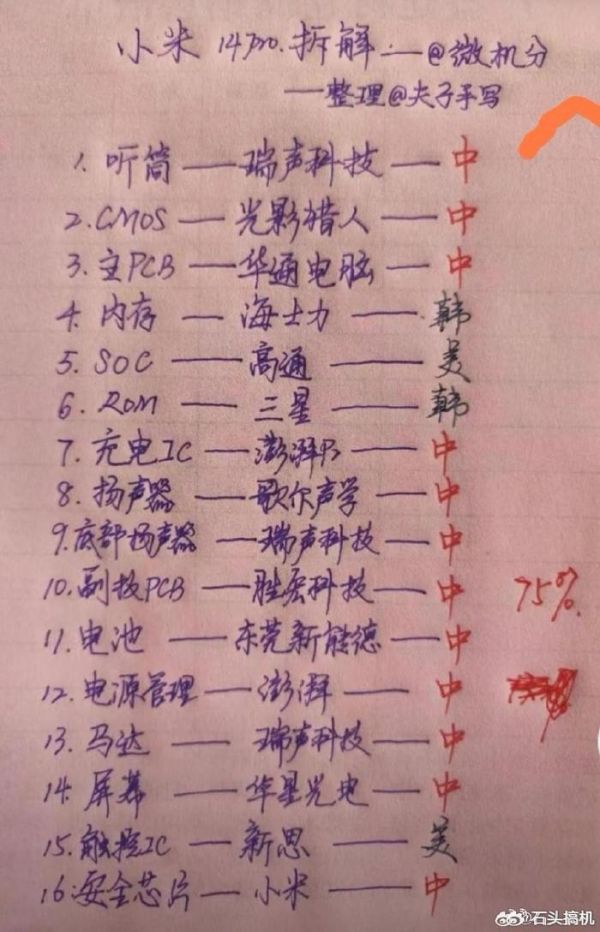 小米 14Pro. 拆解 — @微机分
—整理@夫子手写
1. 听筒 — 瑞声科技 — 中
2. CMOS — 光影猎人 — 中
3. 主PCB — 华通电脑 — 中
4. 内存 — 海士力 — 韩
5. SOC — 高通 — 美
6. ROM — 三星 — 韩
7. 充电IC — 澎湃P2 — 中
8. 扬声器 — 歌尔声学 — 中
9. 底部扬声器 — 瑞声科技 — 中
10. 副板PCB — 胜宏科技 — 中 75%
11. 电池 — 东莞新能德 — 中
12. 电源管理 — 澎湃 — 中
13. 马达 — 瑞声科技 — 中
14. 屏幕 — 华星光电 — 中
15. 触控IC — 新思 — 美
16. 安全芯片 — 小米 — 中
石头搞机